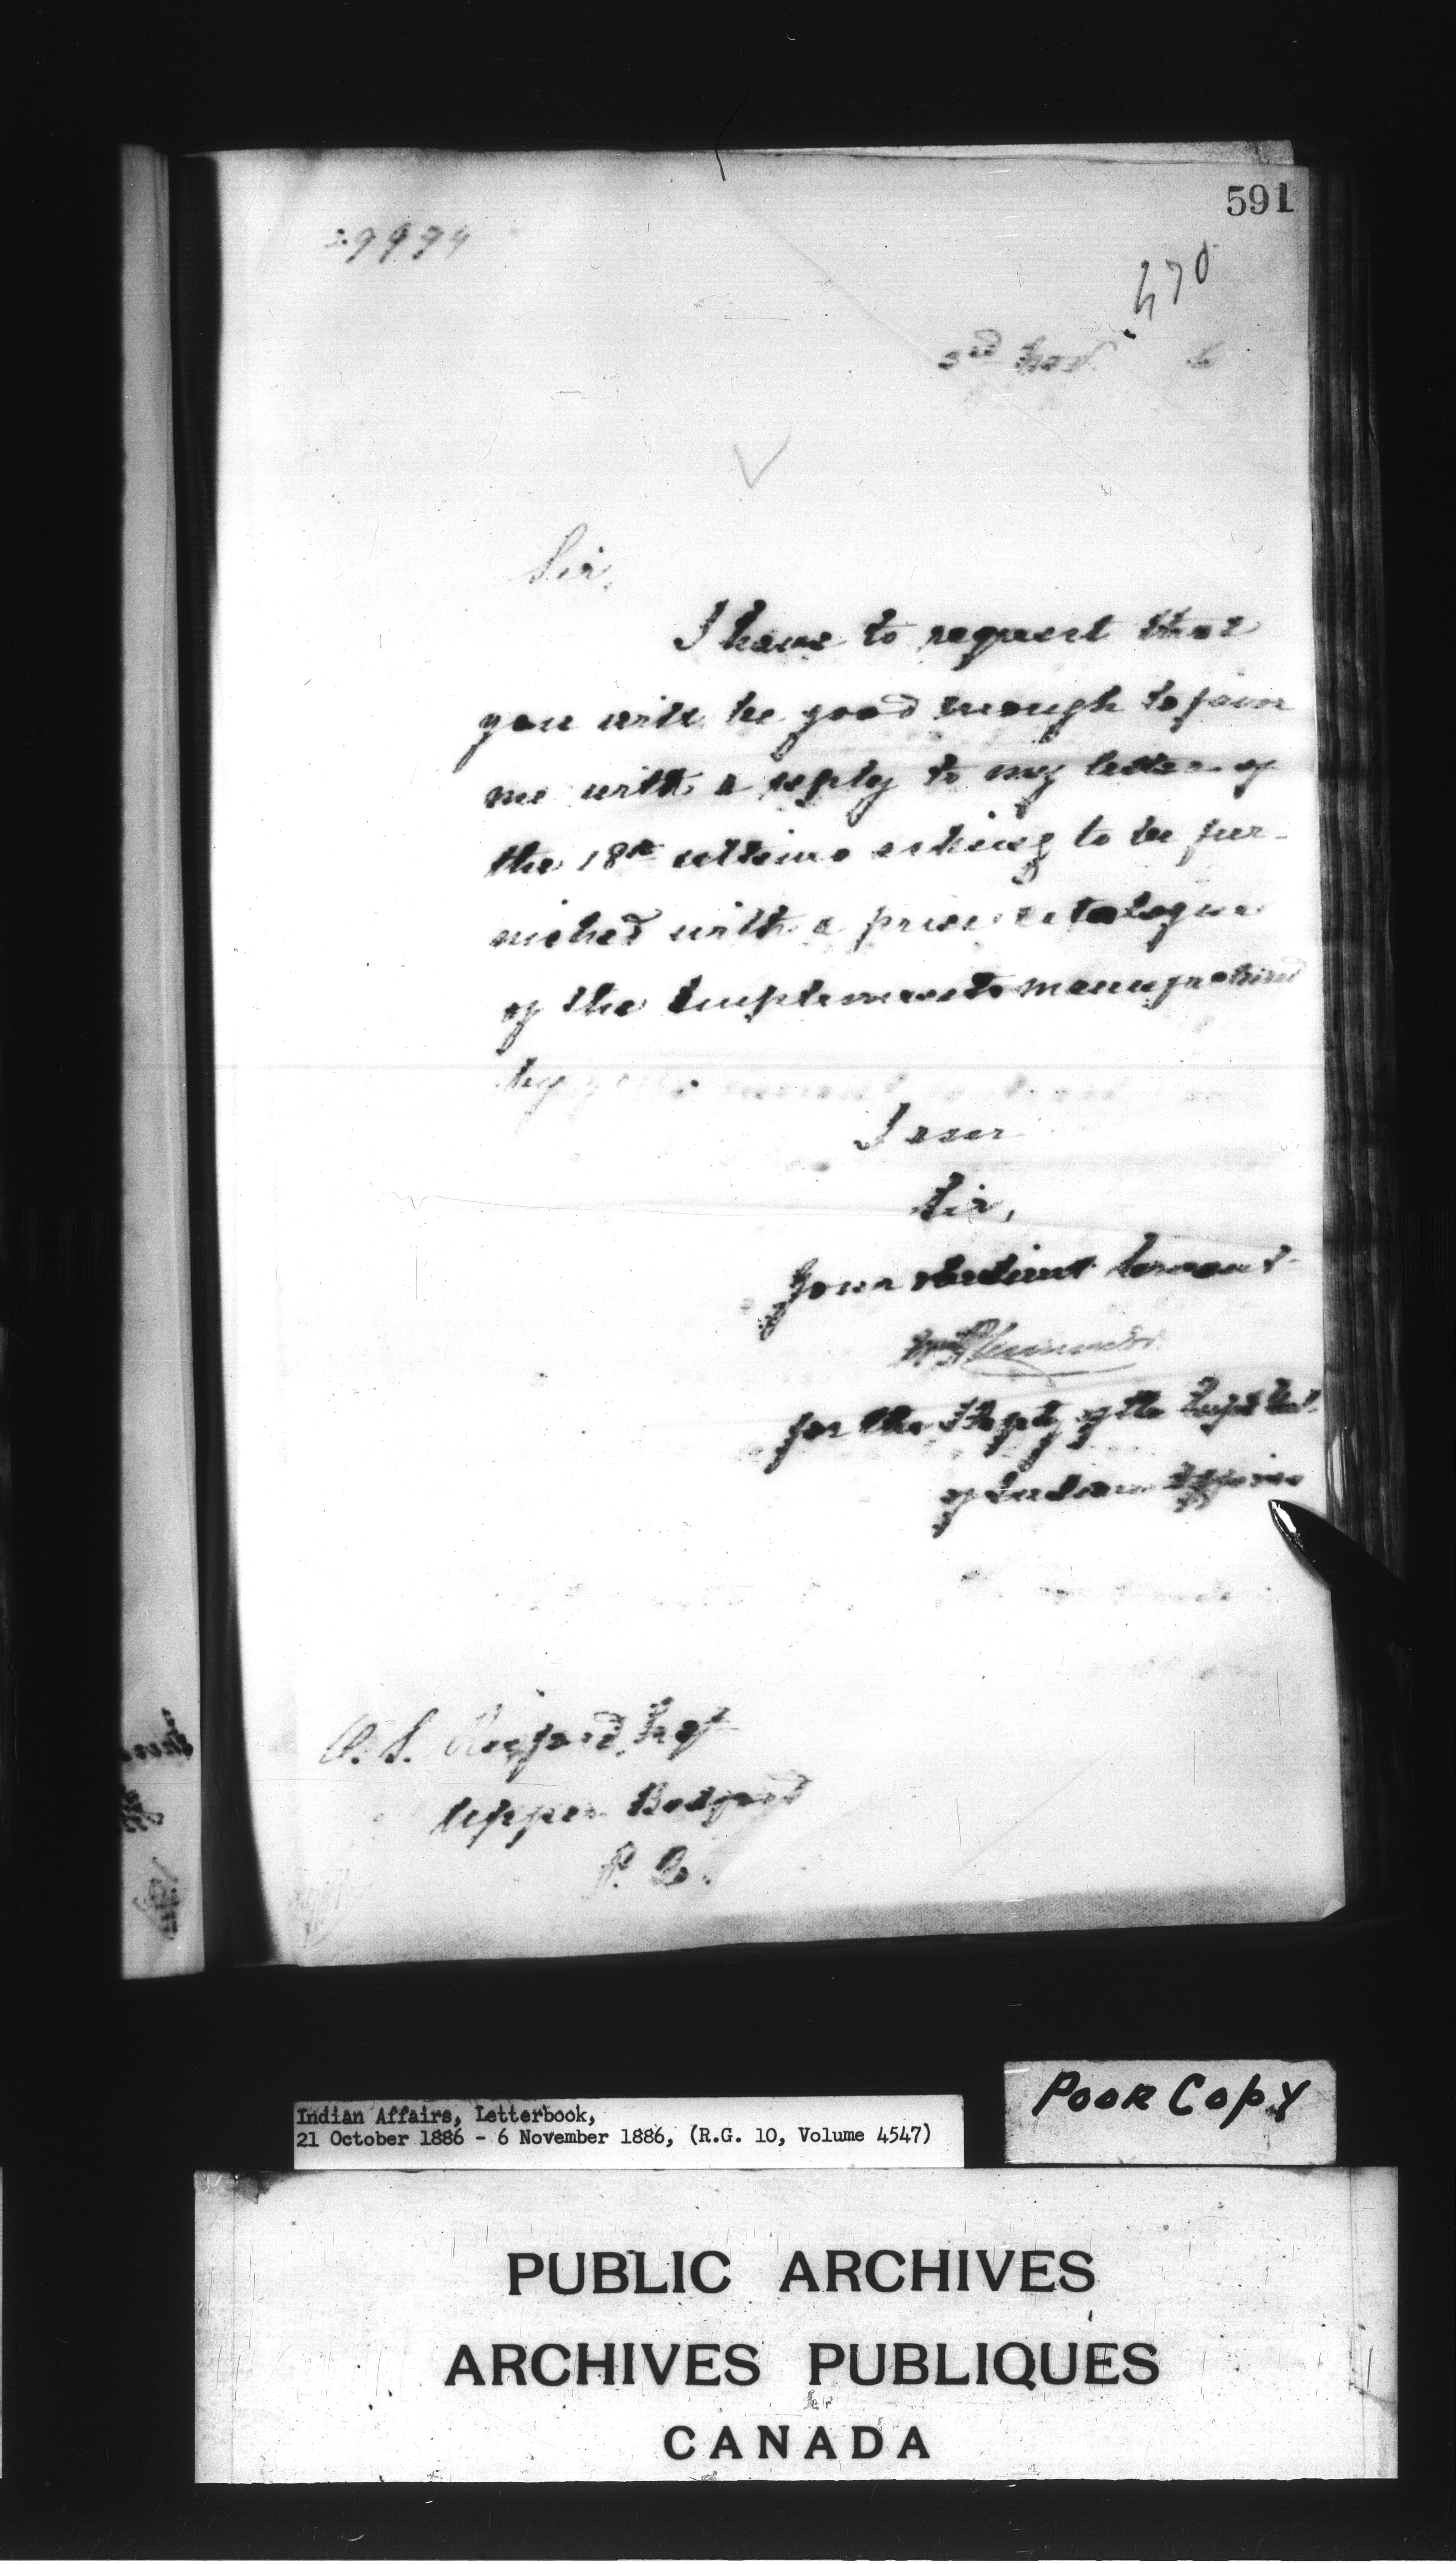 591
29994
470
3rd Nov. 6
Sir,
I have to request that
you will be good enough to favor
me with a reply to my letter of
the 18th ultimo asking to be fur-
nished with a price catalogue
of the Implements manufactured
by
I am
Sir,
Your obedient Servant
for the Supt. of the
of Indian Affairs
O. S. Esq
Upper Bedford
P. Q.
Poor Copy
Indian Affairs, Letterbook,
21 October 1886 - 6 November 1886, (R.G. 10, Volume 4547)
PUBLIC ARCHIVES
ARCHIVES PUBLIQUES
CANADA